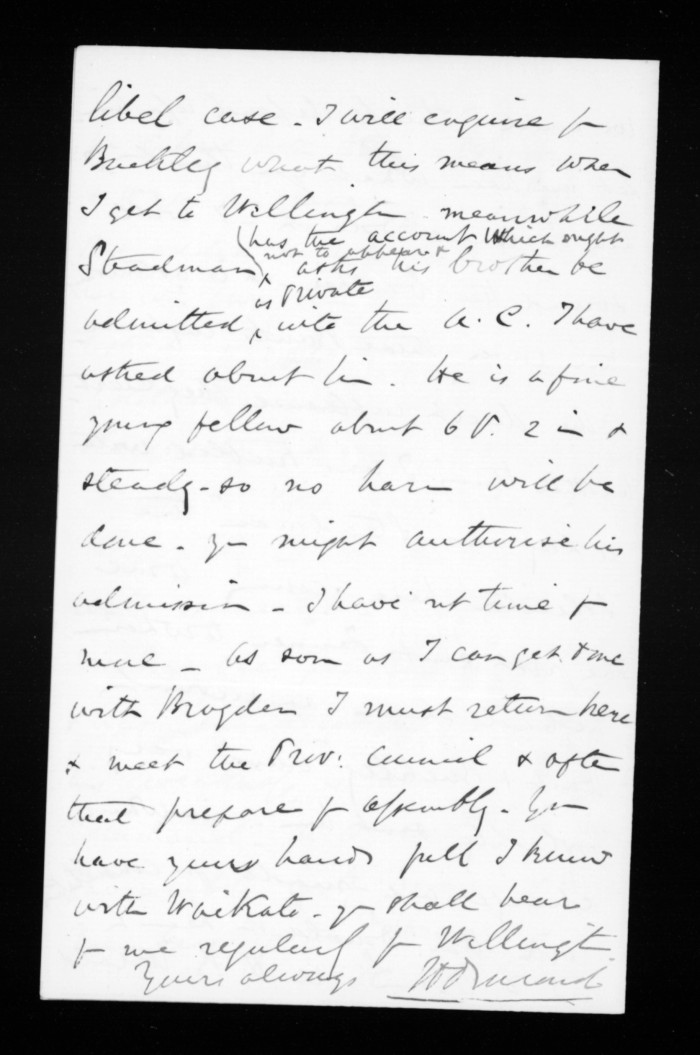 libel case - I will enquire fr
Buckley what this means when
I get to Wellington meanwhile
(has the account which ought
not to appear &
Steadman, asks his brother be
is private
admitted, into the A.C. I have
asked about him. He is a fine
young fellow about 6 ft. 2 in &
steady - so no harm will be
done - yr might authorise his
admission - I have not time fr
more - As soon as I can get done
with Brogden I must return here
& meet the Prov: Council & after
that prepare fr Assembly - You
have yours hands full I know
with Waikato - yr shall hear
fr me regularly fr Wellington
Yours always JD Ormond